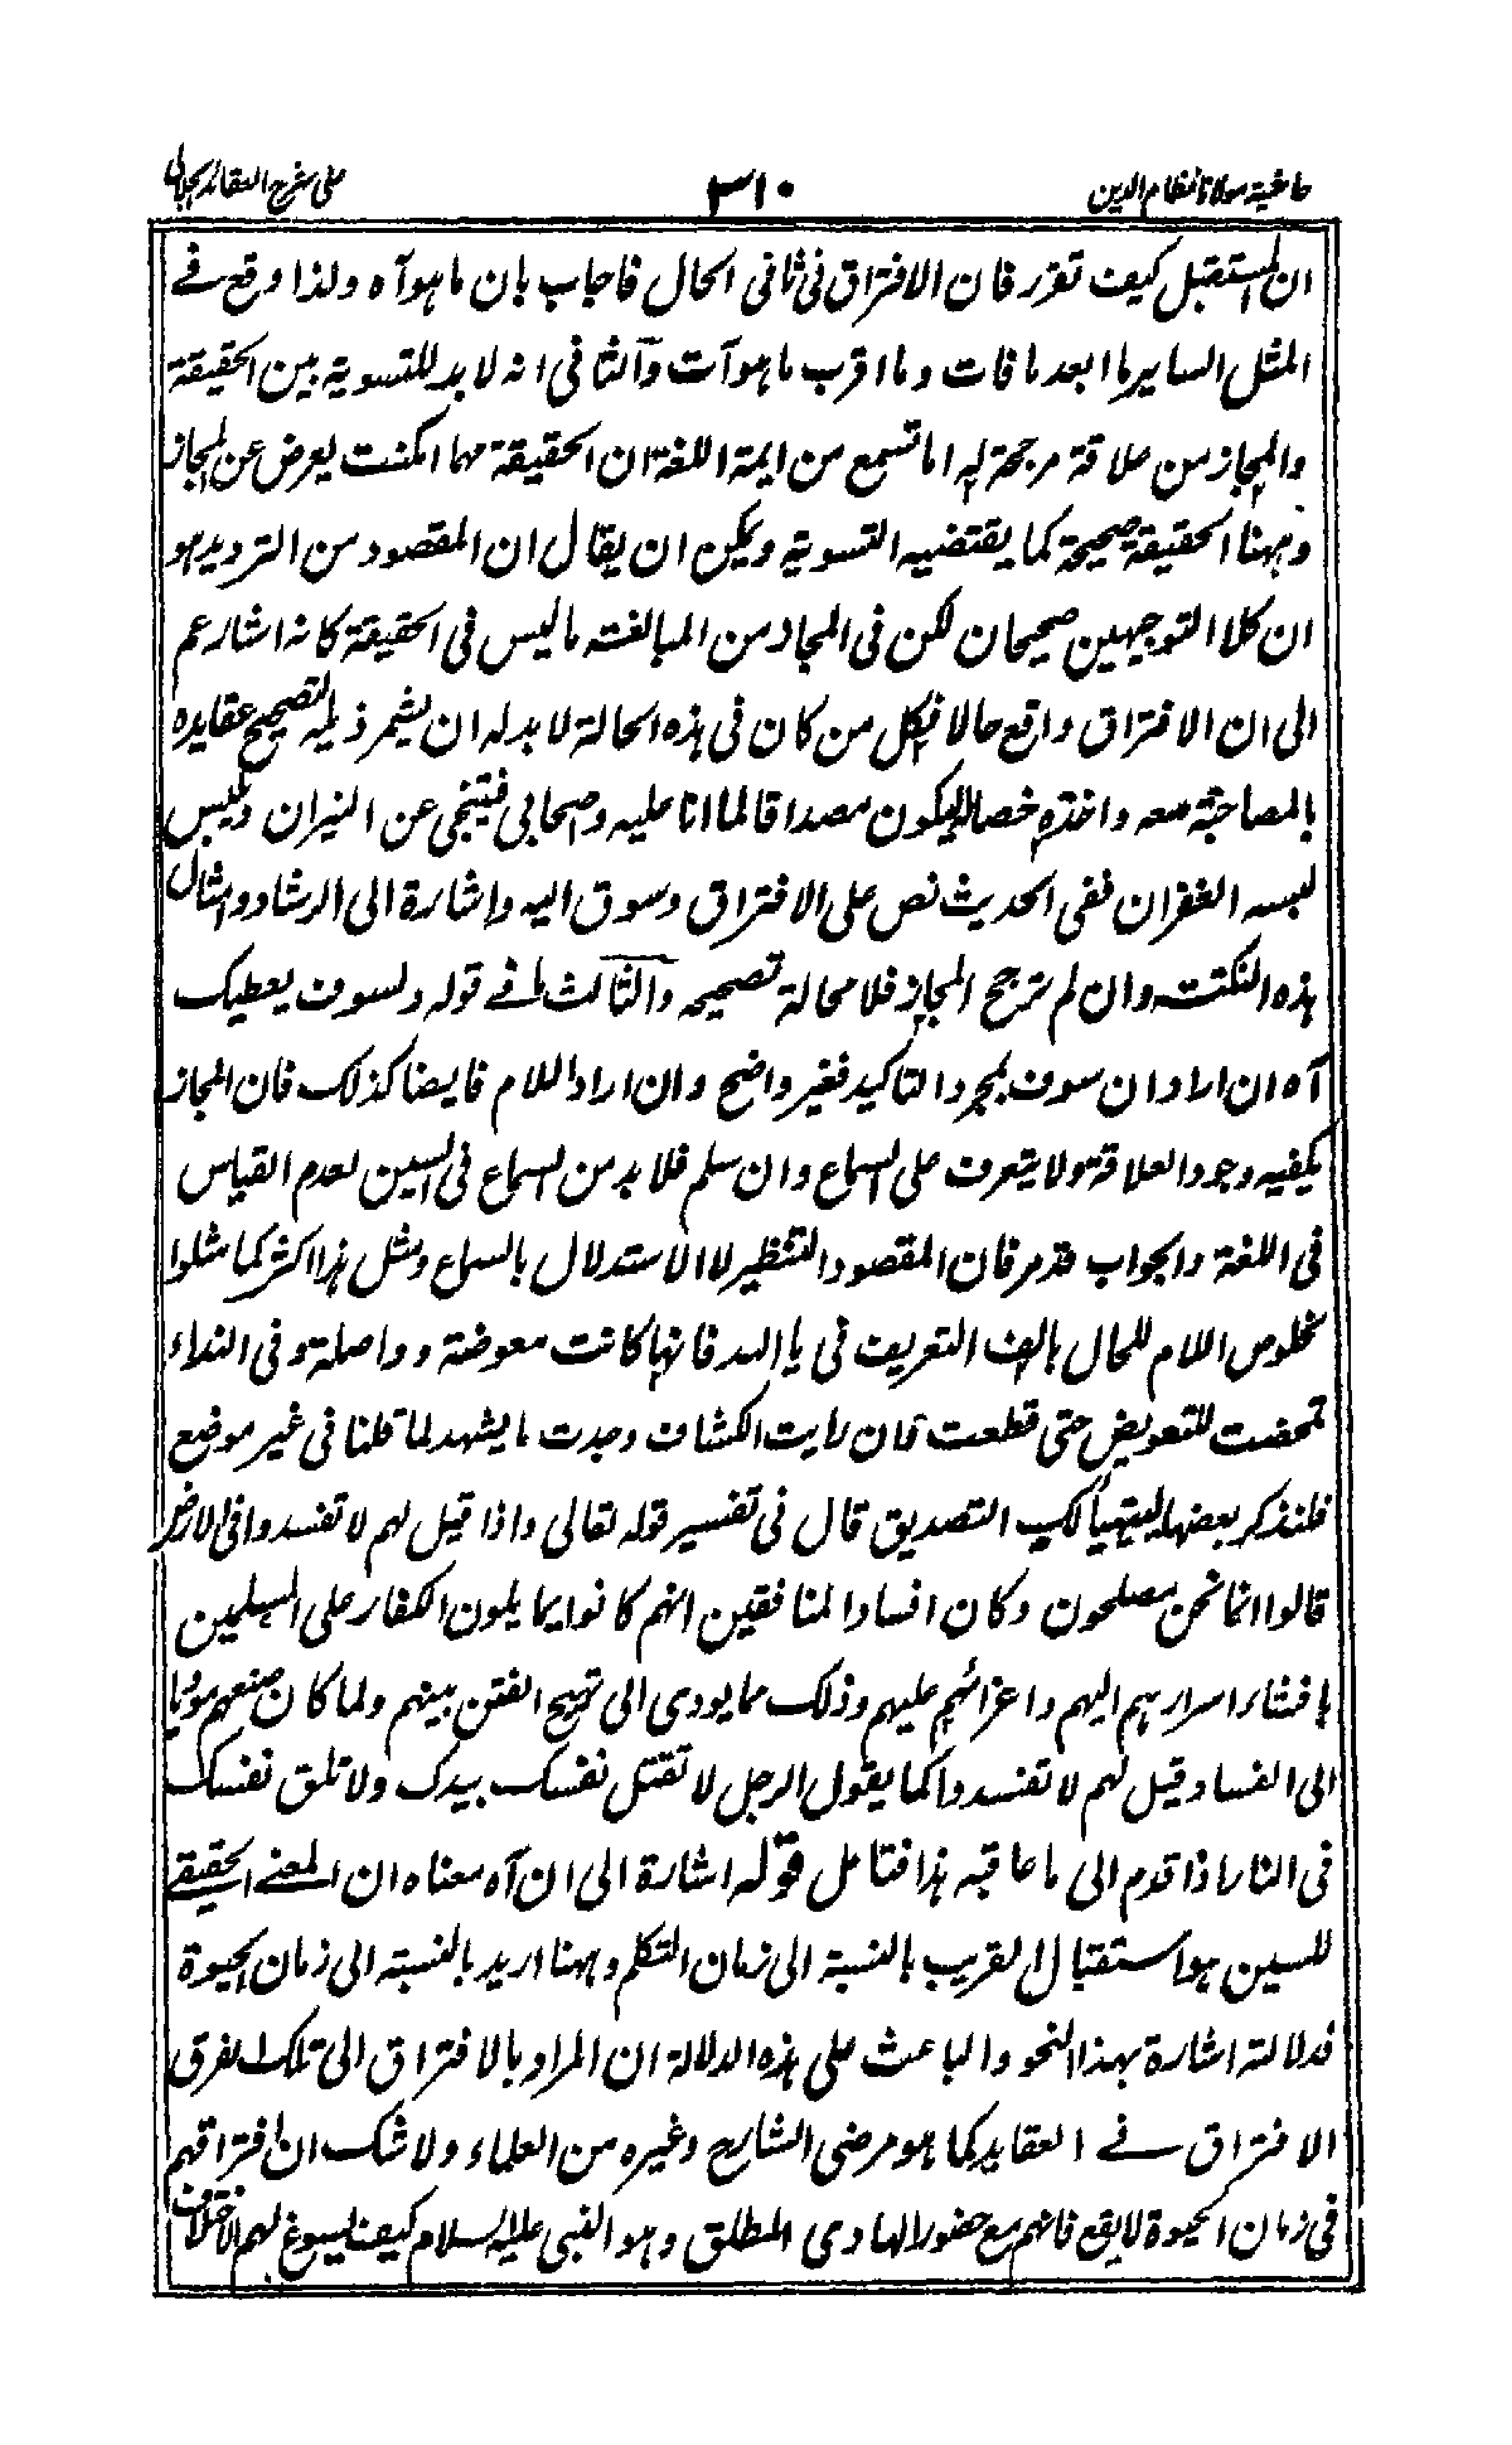 حاشیة مولانا نظام الدین
۳۱۰
على شرح العقائد الجلالی
ان المستقبل كیف تقرر فان الافتراق فی ثانی الحال فاجاب بان ما هو آه ولذا وقع فے
المثل السایر ما ابعد ما فات وما اقرب ما هو آت والثانی انه لا بد للتسویة بین الحقیقة
والمجاز من علاقة مرجحة له اما تسمع من ایمة اللغة ان الحقیقة مهما امكنت یعرض عن المجاز
وههنا الحقیقة صحیحة كما یقتضیه التسویة ویمكن ان یقال ان المقصود من التردید هو
ان كلا التوجیهین صحیحان لكن فی المجاز من المبالغة ما لیس فی الحقیقة كانه اشار عم
الى ان الافتراق واقع حالا فكل من كان فی هذه الحالة لا بد له ان یشمر ذیله لتصحیح عقایده
بالمصاحبة معه واخذه خصاله لیكون مصداقا لما انا علیه واصحابی فینجی عن النیران ویلبس
لبسه الغفران ففی الحدیث نص على الافتراق وسوق الیه واشارة الى الرشاد وامثال
هذه النكتة وان لم ترجح المجاز فلا محالة تصححه والثالث ما فے قوله ولسوف یعطیك
آه ان اراد ان سوف لمجرد التاكید فغیر واضح وان اراد اللام فایضا كذلك فان المجاز
یكفیه وجود العلاقة ولا یتعرف على السماع وان سلم فلا بد من السماع فی السین لعدم القیاس
فی اللغة والجواب قد مر فان المقصود التنظیر لا الاستدلال بالسماع ومثل هذا اكثر كما مثلوا
خلوص اللام للحال بالف التعریف فی یا الله فانها كانت معوضة وواصلة وفی النداء
تمحضت للتعویض حتى قطعت فان رایت الكشاف وجدت ما یشهد لما قلنا فی غیر موضع
فلنذكر بعضها لیتهیأ لك التصدیق قال فی تفسیر قوله تعالى واذا قیل لهم لا تفسدوا فی الارض
قالوا انما نحن مصلحون وكان افساد المنافقین انهم كانوا یمایلون الكفار على المسلمین
بافشاء اسرارهم الیهم واغرائهم علیهم وذلك مما یودی الى تهیج الفتن بینهم ولما كان صنعهم مودیا
الى الفساد قیل لهم لا تفسدوا كما یقول الرجل لا تقتل نفسك بیدك ولا تلق نفسك
فی النار اذا قدم الى ما عاقبه هذا فتامل قوله اشارة الى ان آه معناه ان المعنے الحقیقے
للسین هو استقبال القریب بالنسبة الى زمان التكلم وههنا ارید بالنسبة الى زمان الحیوة
فدلالته اشارة بهذا النحو والباعث على هذه الدلالة ان المراد بالافتراق الى تلك الفرق
الافتراق فے العقاید كما هو مرضی الشارح وغیره من العلماء ولا شك ان افتراقهم
فی زمان الحیوة لا یقع فانهم مع حضور الهادی المطلق وهو النبی علیه السلام كیف یسوغ لهم الاختلاف